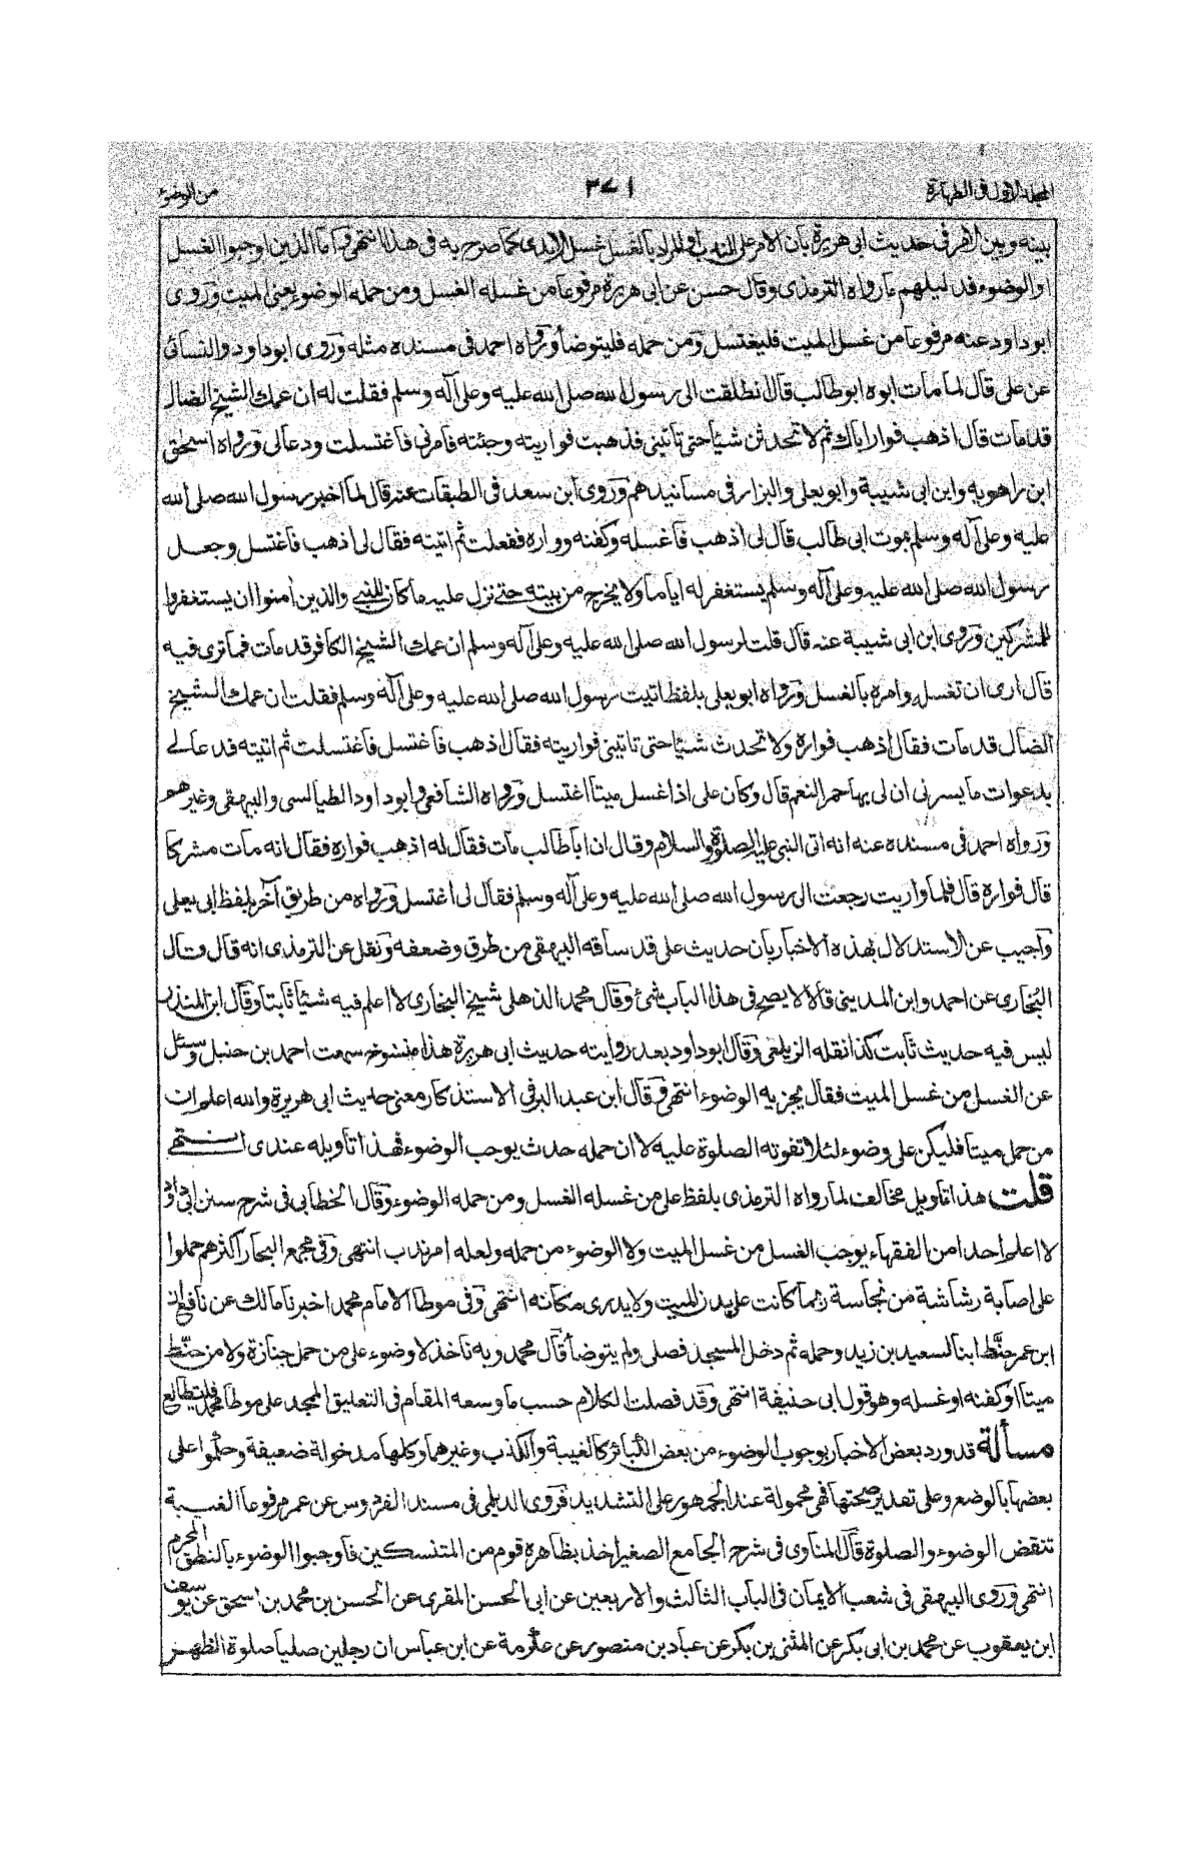 المجلد الاول فى الطهارة ٣٧١ من الوضوء
بينه وبين الامر فى حديث ابى هريرة بان الامر على الندب او المراد بالغسل غسل الايدى كما صرح به فى هذا انتهى واما الذين اوجبوا الغسل
او الوضوء فدليلهم ما رواه الترمذى وقال حسن عن ابى هريرة مرفوعا من غسله الغسل ومن حمله الوضوء يعنى الميت وروى
ابو داود عنه مرفوعا من غسل الميت فليغتسل ومن حمله فليتوضأ ورواه احمد فى مسنده مثله وروى ابو داود والنسائى
عن على قال لما مات ابوه ابو طالب قال انطلقت الى رسول الله صلى الله عليه وعلى آله وسلم فقلت له ان عمك الشيخ الضال
قد مات قال اذهب فوار اباك ثم لا تحدثن شيئا حتى تأتينى فذهبت فواريته وجئته فامرنى فاغتسلت ودعا لى ورواه اسحق
ابن راهويه وابن ابى شيبة وابو يعلى والبزار فى مسانيدهم وروى ابن سعد فى الطبقات عنه قال لما اخبر رسول الله صلى الله
عليه وعلى آله وسلم بموت ابى طالب قال لى اذهب فاغسله وكفنه وواره ففعلت ثم اتيته فقال لى اذهب فاغتسل وجعل
رسول الله صلى الله عليه وعلى آله وسلم يستغفر له اياما ولا يخرج من بيته حتى نزل عليه ما كان للنبى والذين اٰمنوا ان يستغفروا
للمشركين وروى ابن ابى شيبة عنه قال قلت لرسول الله صلى الله عليه وعلى آله وسلم ان عمك الشيخ الكافر قد مات فما ترى فيه
قال ارى ان تغسله وامره بالغسل ورواه ابو يعلى بلفظ اتيت رسول الله صلى الله عليه وعلى آله وسلم فقلت ان عمك الشيخ
الضال قد مات فقال اذهب فواره ولا تحدث شيئا حتى تاتينى فواريته فقال اذهب فاغتسل فاغتسلت ثم اتيته فدعا لى
بدعوات ما يسرنى ان لى بها حمر النعم قال وكان على اذا غسل ميتا اغتسل ورواه الشافعى وابو داود الطيالسى والبيهقى وغيرهم
ورواه احمد فى مسنده عنه انه اتى النبى عليه الصلوة والسلام وقال ان ابا طالب مات فقال له اذهب فواره فقال انه مات مشركا
قال فواره قال فلما واريت رجعت الى رسول الله صلى الله عليه وعلى آله وسلم فقال لى اغتسل ورواه من طريق آخر بلفظ ابى يعلى
واجيب عن الاستدلال بهذه الاخبار بان حديث على قد ساقه البيهقى من طرق وضعفه ونقل عن الترمذى انه قال قال
البخارى عن احمد وابن المدينى قالا لا يصح فى هذا الباب شئ وقال محمد الذهلى شيخ البخارى لا اعلم فيه شيئا ثابتا وقال ابن المنذر
ليس فيه حديث ثابت كذا نقله الزيلعى وقال ابو داود بعد روايته حديث ابى هريرة هذا منسوخ سمعت احمد بن حنبل وسئل
عن الغسل من غسل الميت فقال يجزيه الوضوء انتهى وقال ابن عبد البر فى الاستذكار معنى حديث ابى هريرة والله اعلم ان
من حمل ميتا فليكن على وضوء لئلا تفوته الصلوة عليه لا ان حمله حدث يوجب الوضوء فهذا تأويله عندى انتهى
قلت هذا تاويل مخالف لما رواه الترمذى بلفظ على من غسله الغسل ومن حمله الوضوء وقال الخطابى فى شرح سنن ابى داود
لا اعلم احدا من الفقهاء يوجب الغسل من غسل الميت ولا الوضوء من حمله ولعله امر ندب انتهى وفى مجمع البحار اكثرهم حملوا
على اصابة رشاشة من نجاسة ربما كانت على بدن الميت ولا يدرى مكانه انتهى وفى موطا الامام محمد اخبرنا مالك عن نافع ان
ابن عمر حنّط ابنا لسعيد بن زيد وحمله ثم دخل المسجد فصلى ولم يتوضأ قال محمد وبه ناخذ لا وضوء على من حمل جنازة ولا من حنّط
ميتا او كفنه او غسله وهو قول ابى حنيفة انتهى وقد فصلت الكلام حسب ما وسعه المقام فى التعليق الممجد على موطا محمد فليطالع
مسألة قد ورد بعض الاخبار بوجوب الوضوء من بعض الكبائر كالغيبة والكذب وغيرهما وكلها مدخولة ضعيفة وحكموا على
بعضها بالوضع وعلى تقدير صحتها فهى محمولة عند الجمهور على التشديد فروى الديلمى فى مسند الفردوس عن عمر مرفوعا الغيبة
تنقض الوضوء والصلوة قال المناوى فى شرح الجامع الصغير اخذ بظاهره قوم من المتنسكين فاوجبوا الوضوء بالنطق المحرم
انتهى وروى البيهقى فى شعب الايمان فى الباب الثالث والاربعين عن ابى الحسن المقرى عن الحسن بن محمد بن اسحق عن يوسف
ابن يعقوب عن محمد بن ابى بكر عن المثنى بن بكر عن عباد بن منصور عن عكرمة عن ابن عباس ان رجلين صليا صلوة الظهر